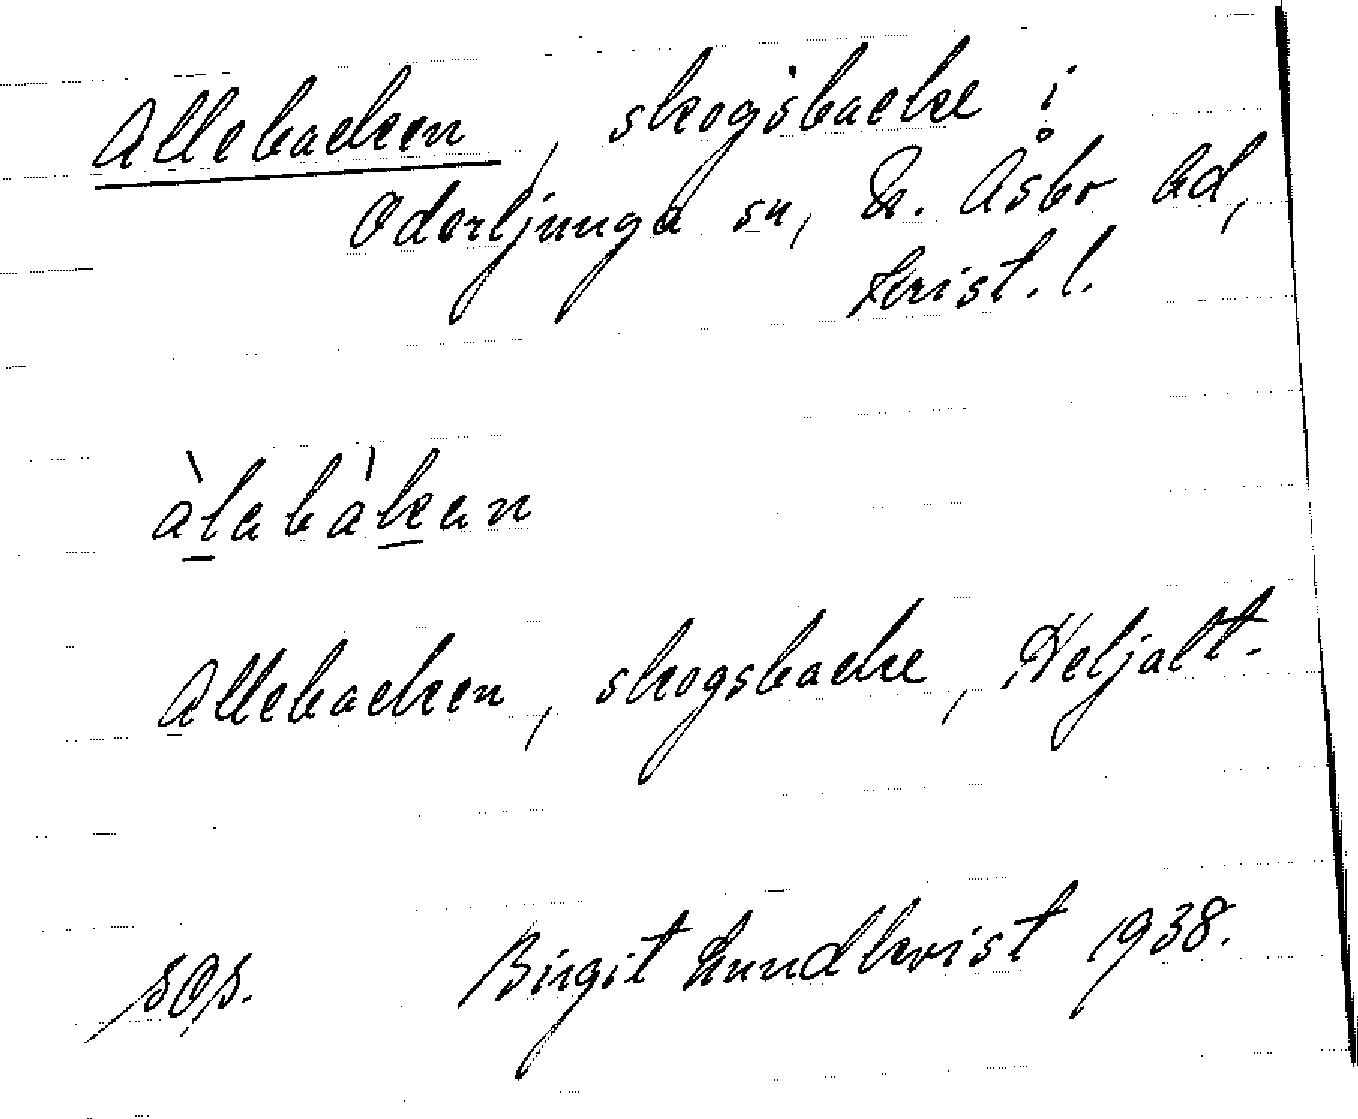 Allebacken, skogsbacke i
Oderljunga sn, N. Åsbo hd,
Krist. l.
àlabàkan
Allebacken, skogsbacke, Heljalt-
SOS. Birgit Lundkvist 1938.